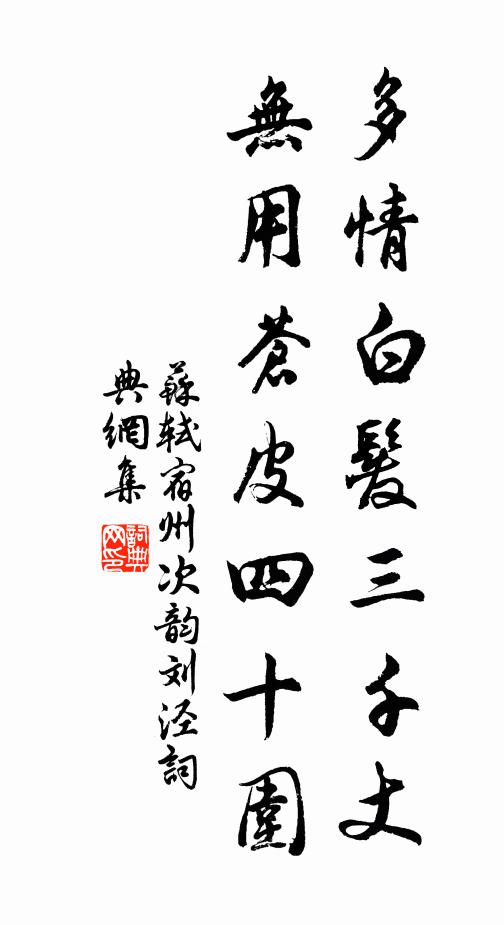 多情白髮三千丈
無用蒼皮四十圍
蘇軾宿州次韵刘泾詞
典網集
詞典網印